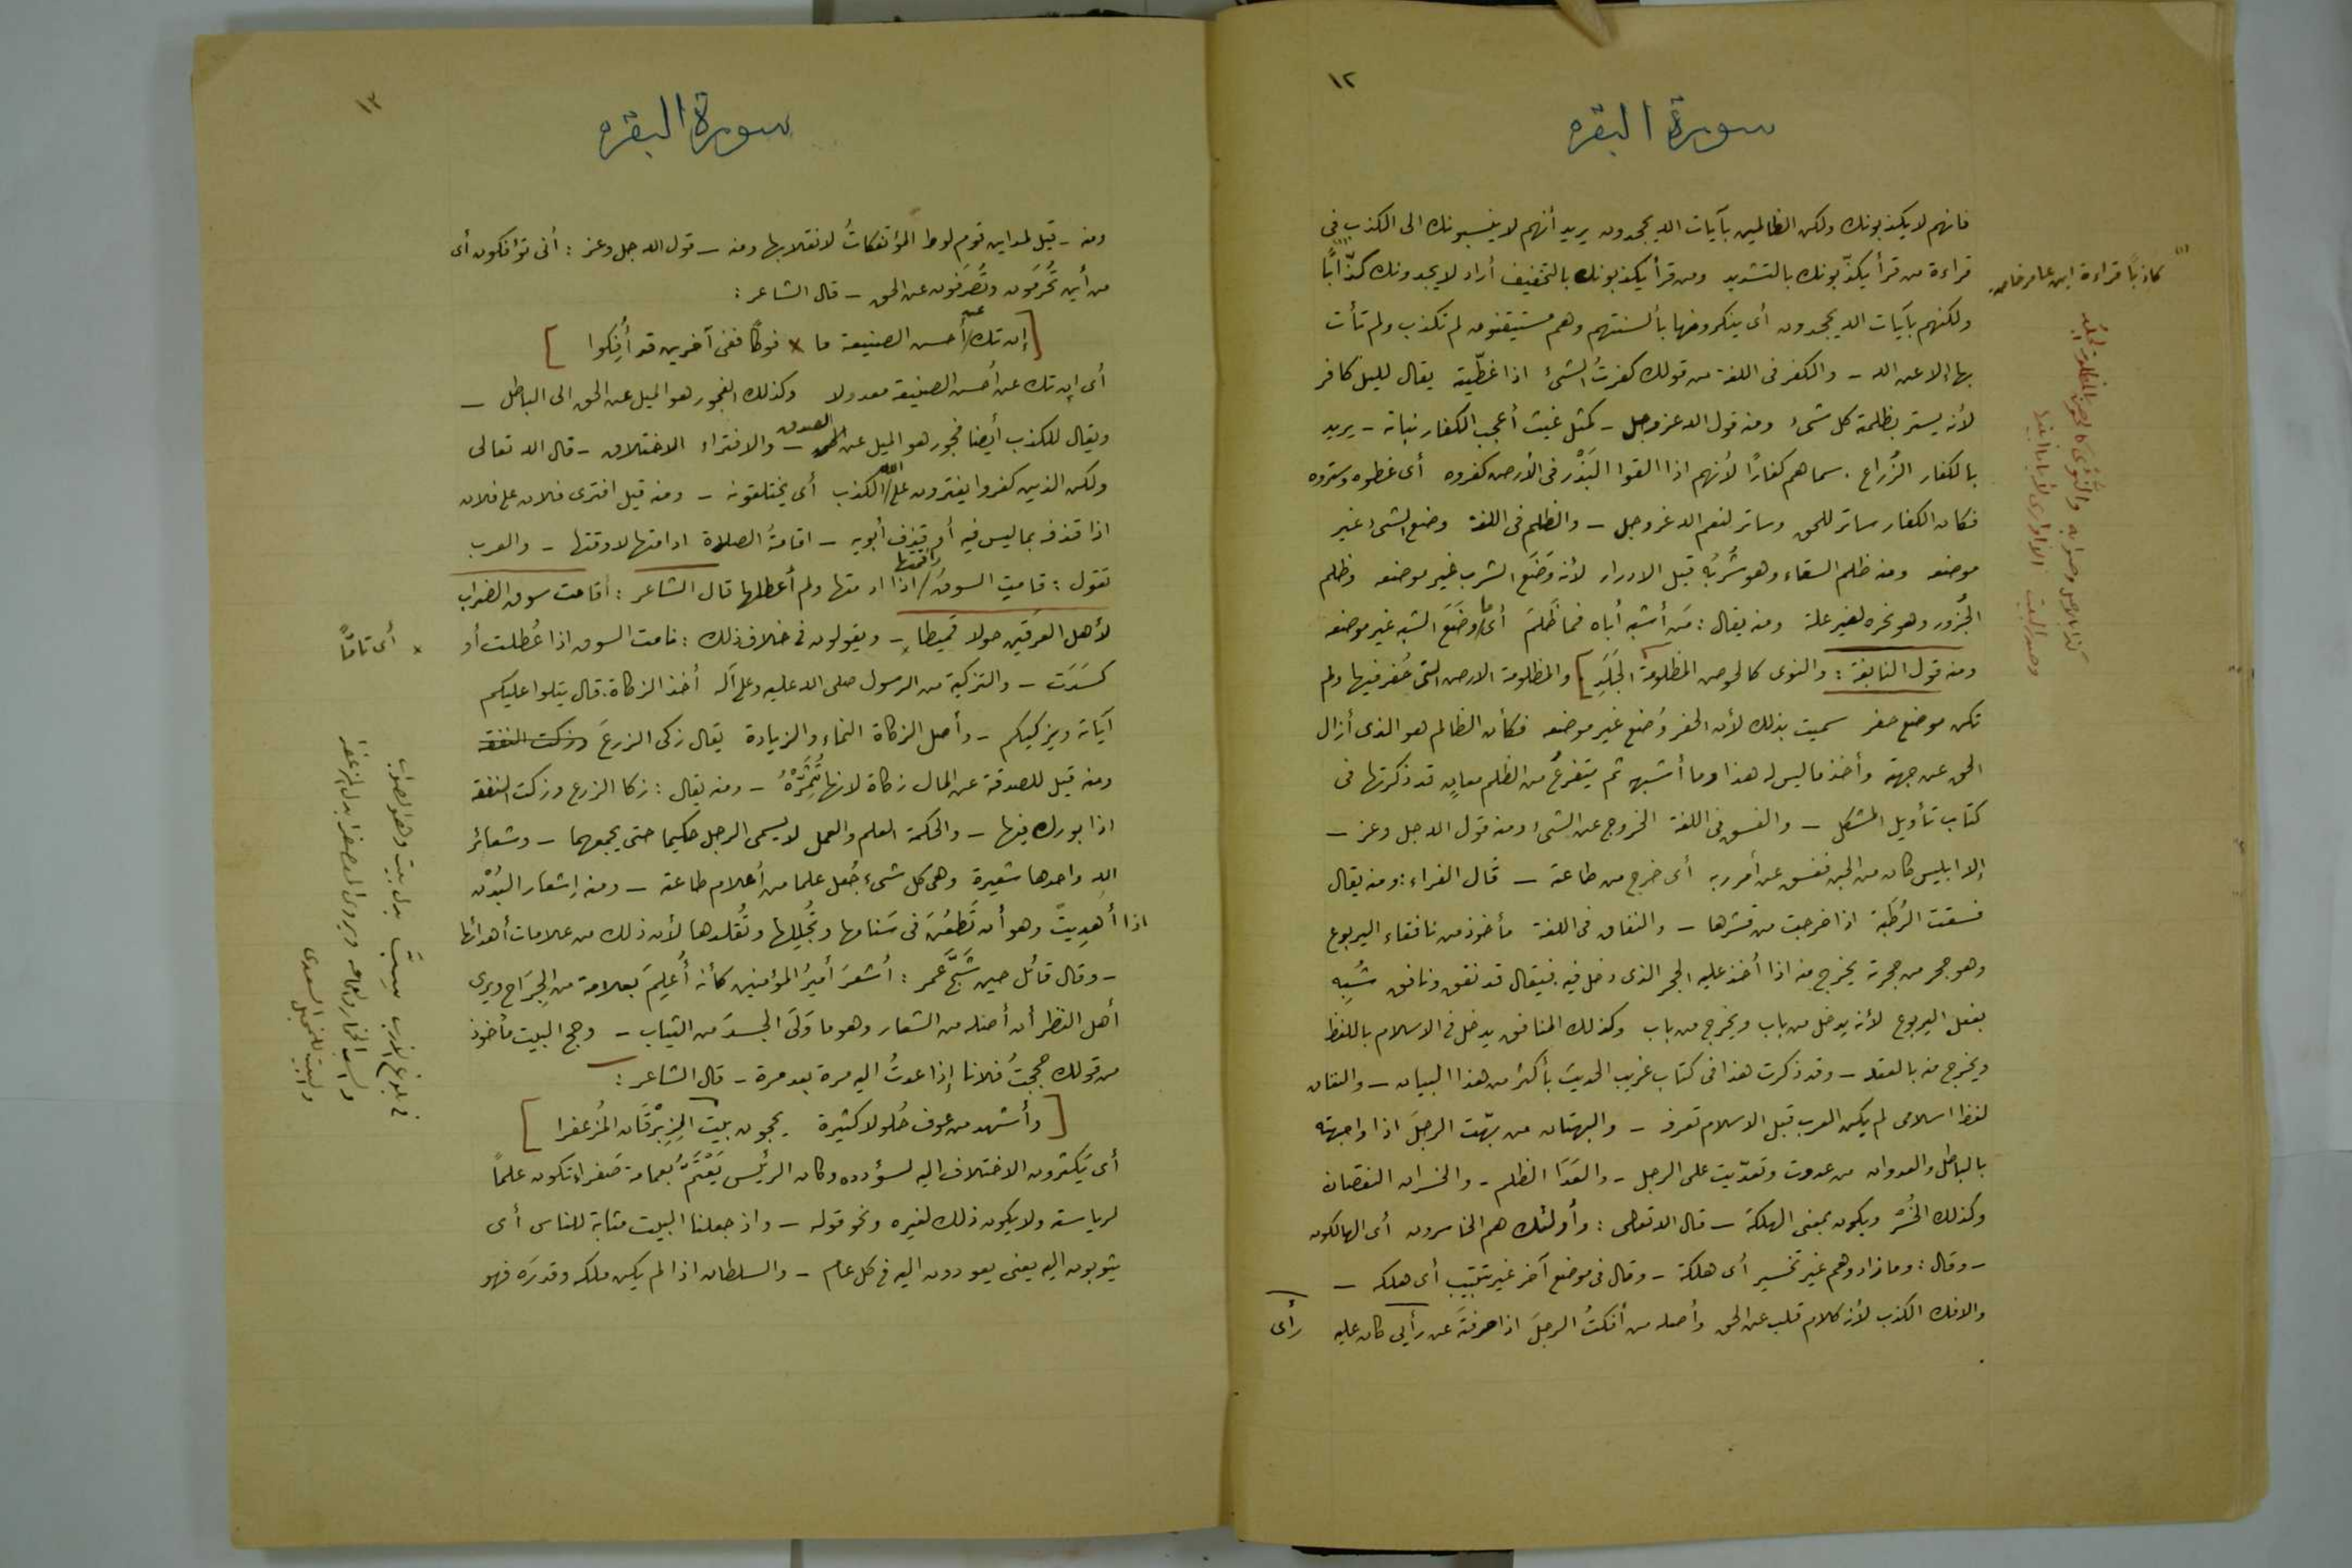 ١٢
سورة البقره
فانهم لا يكذبونك ولكن الظالمين بآيات الله يجحدون يريد أنهم لا ينسبونك الى الكذب في
قراءة من قرأ يكذّبونك بالتشديد ومن قرأ يكذبونك بالتخفيف أراد لا يجدونك كذّابًا
كاذبًا قراءة ابن عامر
ولكنهم بآيات الله يجحدون أى ينكرونها بألسنتهم وهم مستيقنون لم تكذب ولم تأت
بها إلا عن الله - والكفر فى اللغة من قولك كفرتُ الشئ اذا غطّيته يقال لليل كافر
لأنه يستر بظلمته كل شئ ومنه قول الله عز وجل - كمثل غيث أعجب الكفار نباته - يريد
بالكفار الزُراع . سماهم كفارًا لأنهم اذا القوا البَذْر فى الأرض كفروه أى غطوه وستروه
فكان الكفار ساتر للحق وساتر لنعم الله عز وجل - والظلم فى اللغة وضع الشئ غير
موضعه ومنه ظلم السقاء وهو شُربُه قبل الادراك لأنه وَضَع الشرب غير موضعه وظلم
الجُزور وهو نحره لغير علة ومنه يقال : مَن أشبه أباه فما ظَلَمَ أى ما وَضَعَ الشبه غير موضعه
ومنه قول النابغة : والنوى كالحوض المظلومة الجَلَدِ ] والمظلومة الارض التى حُفر فيها ولم
تكن موضع حفر سميت بذلك لأن الحفر وُضع غير موضعه فكأن الظالم هو الذى أزال
الحق عن جهته وأخذ ما ليس له هذا وما أشبهه ثم يتفرعُ من الظلم معانٍ قد ذكرتها فى
كتاب تأويل المشكل - والفسق فى اللغة الخروج عن الشئ ومنه قول الله جل وعز -
إلا ابليس كان من الجن ففسق عن أمر ربه أى خرج من طاعته - قال الفراء : ومنه يقال
فسقت الرُطَبة اذا خرجت من قشرها - والنفاق فى اللغة مأخوذ من نافقاء اليربوع
وهو جحر من جحرته يخرج منه اذا أُخذ عليه الجحر الذى دخل فيه فيقال قد نفق ونافق شُبِه
بفعل اليربوع لأنه يدخل من باب ويخرج من باب وكذلك المنافق يدخل فى الاسلام باللفظ
ويخرج منه بالعقد - وقد ذكرت هذا فى كتاب غريب الحديث بأكثر من هذا البيان - والنفاق
لفظ اسلامى لم يكن العرب قبل الاسلام تعرفه - والبهتان من بهّت الرجلَ اذا واجهته
بالباطل والعدوان من عدوت وتعدّيت على الرجل - والعَدَا الظلم - والخسران النقصان
وكذلك الخُسْر ويكون بمعنى الهلكة - قال الله تعالى : وأولئك هم الخاسرون أى الهالكون
- وقال : وما زادوهم غير تخسير أى هلكة - وقال فى موضع آخر غير تتبيب أى هلكه -
والافك الكذب لأنه كلام قلب عن الحق وأصله من أفكتُ الرجلَ اذا صرفتَه عن رأيٍ كان عليه رأى
سورة البقره
ومنه - قيل لمداين قوم لوط المؤتفكاتُ لانقلابها ومنه - قول الله جل وعز : أنى تؤفكون أى
من أين تُحْرَمون وتُصْرَفون عن الحق - قال الشاعر :
[ إن تك عن أحسن الصنيعة ما × فوكًا ففى آخرين قد أُفِكوا ]
أى إن تك عن أحسن الصنيعة معدولا وكذلك الفجور هو الميل عن الحق الى الباطل -
ويقال للكذب أيضا فجور هو الميل عن الصدق - والافتراء الاختلاق - قال الله تعالى
ولكن الذين كفروا يفترون على الله الكذب أى يختلقونه - ومنه قيل افترى فلان على فلان
اذا قذفه بما ليس فيه أو قذف أبويه - اقامةُ الصلاة ادامتها لاوقتها - والعرب
تقول : قامت السوقُ / وأقمتها اذا ادمتها ولم أعطلها قال الشاعر : أقامت سوق الضراب
لأهل العرقين حولا قميطا × - ويقولون فى خلاف ذلك : نامت السوق اذا عُطلت أو
× أى تامًّا
كسدَت - والتزكية من الرسول صلى الله عليه وعلى آله أخذ الزكاة . قال يتلوا عليكم
آياته ويزكيكم - وأصل الزكاة النماء والزيادة يقال زكى الزرعَ وزكت النفقه
ومنه قيل للصدقة عن المال زكاة لانها تُثَمِّرُهُ - ومنه يقال : زكا الزرع وزكت النفقه
اذا بورك فيها - والحكمة العلم والعمل لا يسمى الرجل حكيما حتى يجمعهما - وشعائر
الله واحدها شعيرة وهى كل شئ جُعل علما من أعلام طاعته - ومنه إشعار البُدْن
اذا أُهدِيتْ وهو أن تَطعُنَ فى سَنامها وتُجَلِلها وتُقلدها لأن ذلك من علامات أهدائها
- وقال قائل حين شَجَّ عمر : أُشعرَ أميرُ المؤمنين كأنه أُعلِمَ بعلامة من الجِرَاح ويرى
أهل النظر أن أصله من الشعار وهو ما وَلَى الجسدَ من الثياب - وحج البيت مأخوذ
من قولك حججتُ فلانا إذا عدتُ اليه مرة بعد مرة - قال الشاعر :
[ وأشهد من عوف حُلولا كثيرة يحجون بيت الزِبْرقَان المُزعفرا ]
أى يَكثرون الاختلاف اليه لسؤدده وكان الرئيس يَعْتَمُّ بعمامة صَفراء تكون علمًا
لرياسته ولا يكون ذلك لغيره ونحو قوله - واذ جعلنا البيت مثابة للناس أى
يثوبون اليه يعنى يعودون اليه فى كل عام - والسلطان اذا لم يكن ملكه وقدرَه فهو